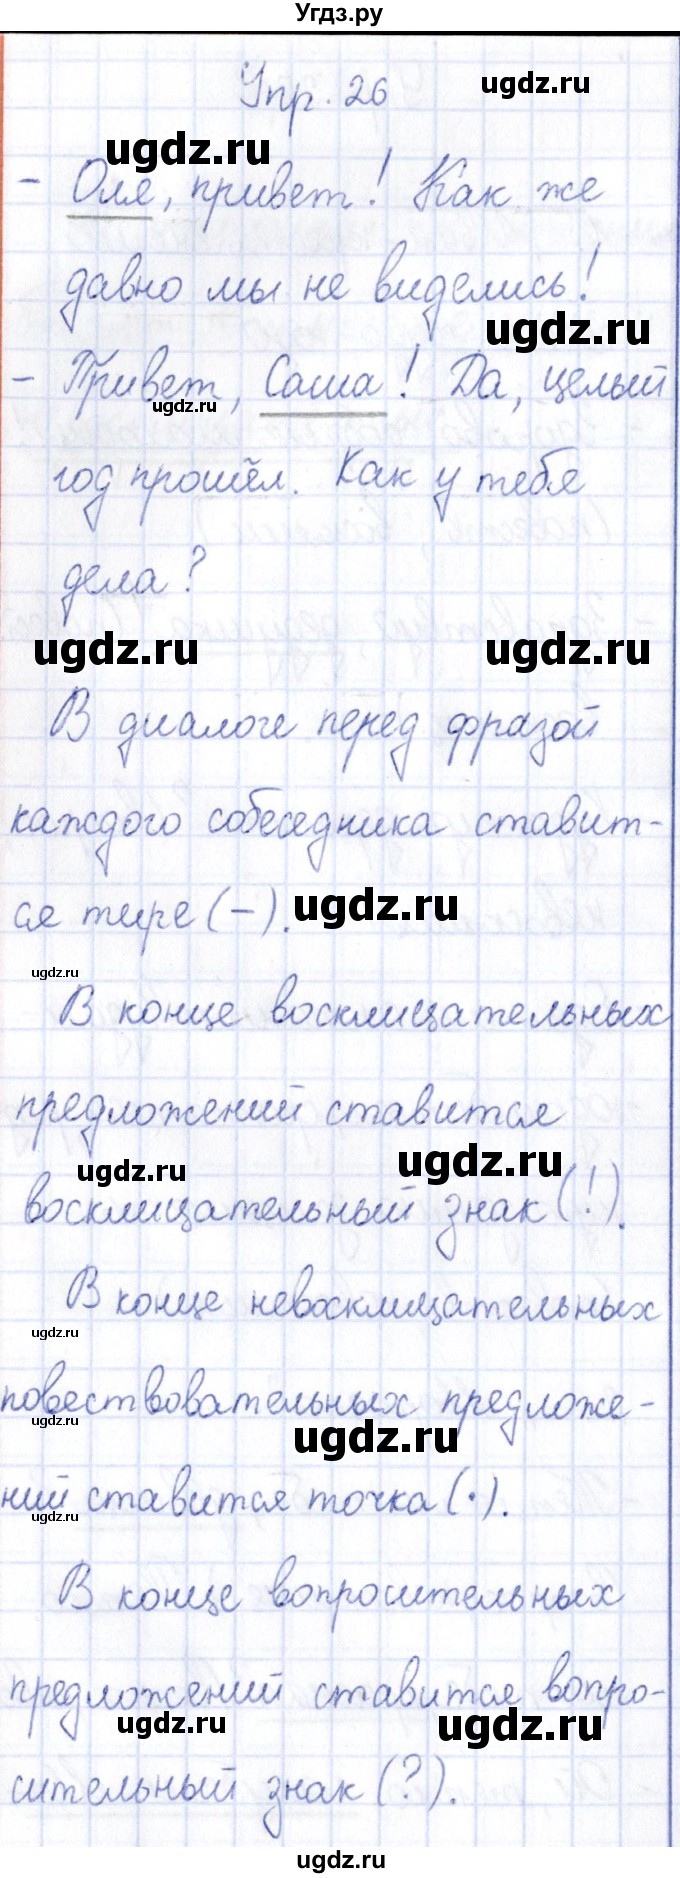 Угдз.ру
Упр. 26
ugdz.ru
ugdz.ru
- Оля, привет! Как же
давно мы не виделись!
ugdz.ru
- Привет, Саша! Да, целый
ugdz.ru
год прошёл. Как у тебя
дела?
ugdz.ru
ugdz.ru
В диалоге перед фразой
каждого собеседника ставит-
ся тире (-).
ugdz.ru
ugdz.ru
В конце восклицательных
предложений ставится
ugdz.ru
ugdz.ru
восклицательный знак (!).
В конце невосклицательных
ugdz.ru
повествовательных предложе-
ugdz.ru
ugdz.ru
ний ставится точка (.).
ugdz.ru
В конце вопросительных
предложений ставится вопро-
ugdz.ru
ugdz.ru
сительный знак (?).
ugdz.ru